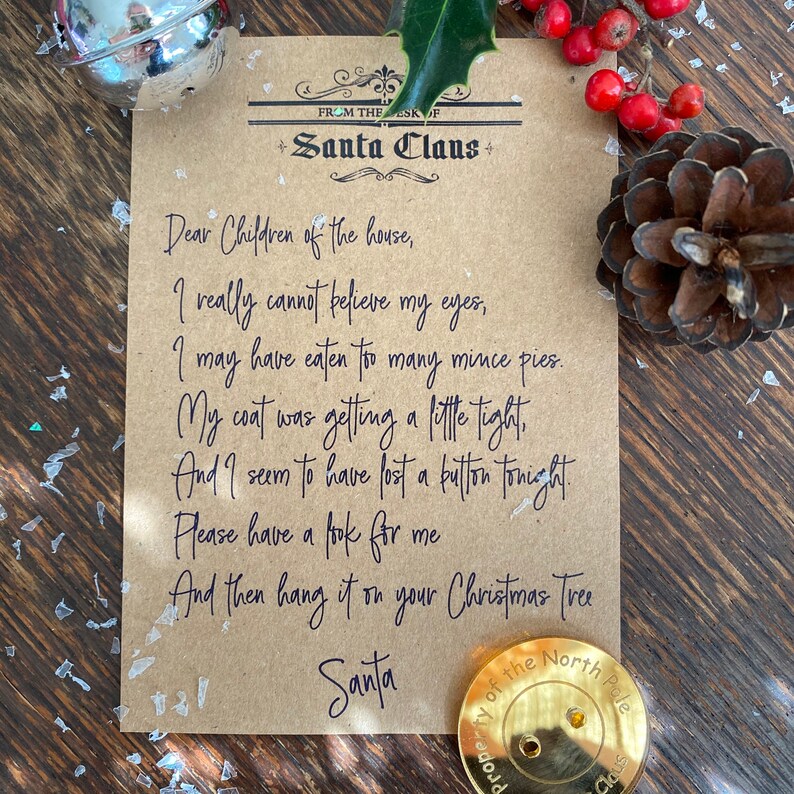 FROM THE DESK OF
Santa Claus
Dear Children of the house,
I really cannot believe my eyes,
I may have eaten too many mince pies.
My coat was getting a little tight,
And I seem to have lost a button tonight.
Please have a look for me
And then hang it on your Christmas Tree
Santa
Property of the North Pole
Claus